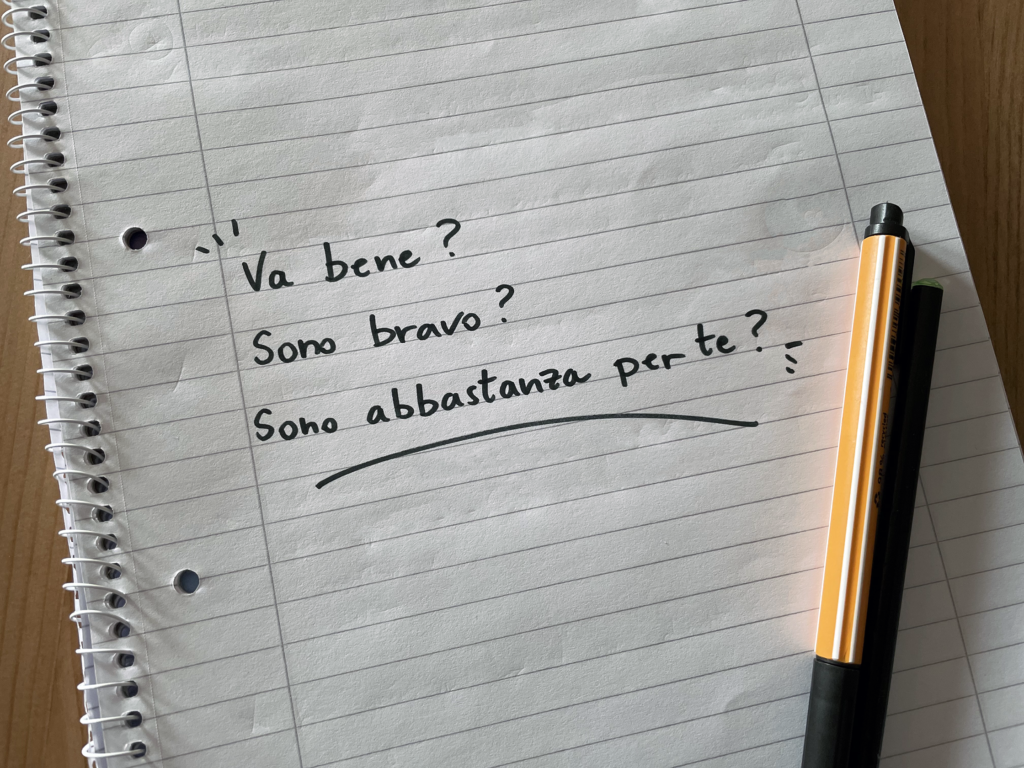 Va bene?
Sono bravo?
Sono abbastanza per te?